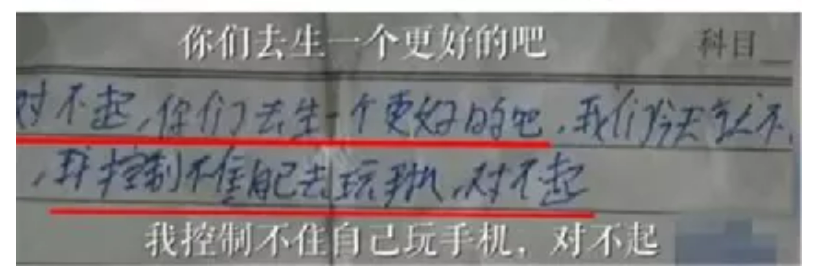 你们去生一个更好的吧
科目
对不起,你们去生一个更好的吧,我们今天就不
,我控制不住自己去玩手机,对不起
我控制不住自己玩手机,对不起